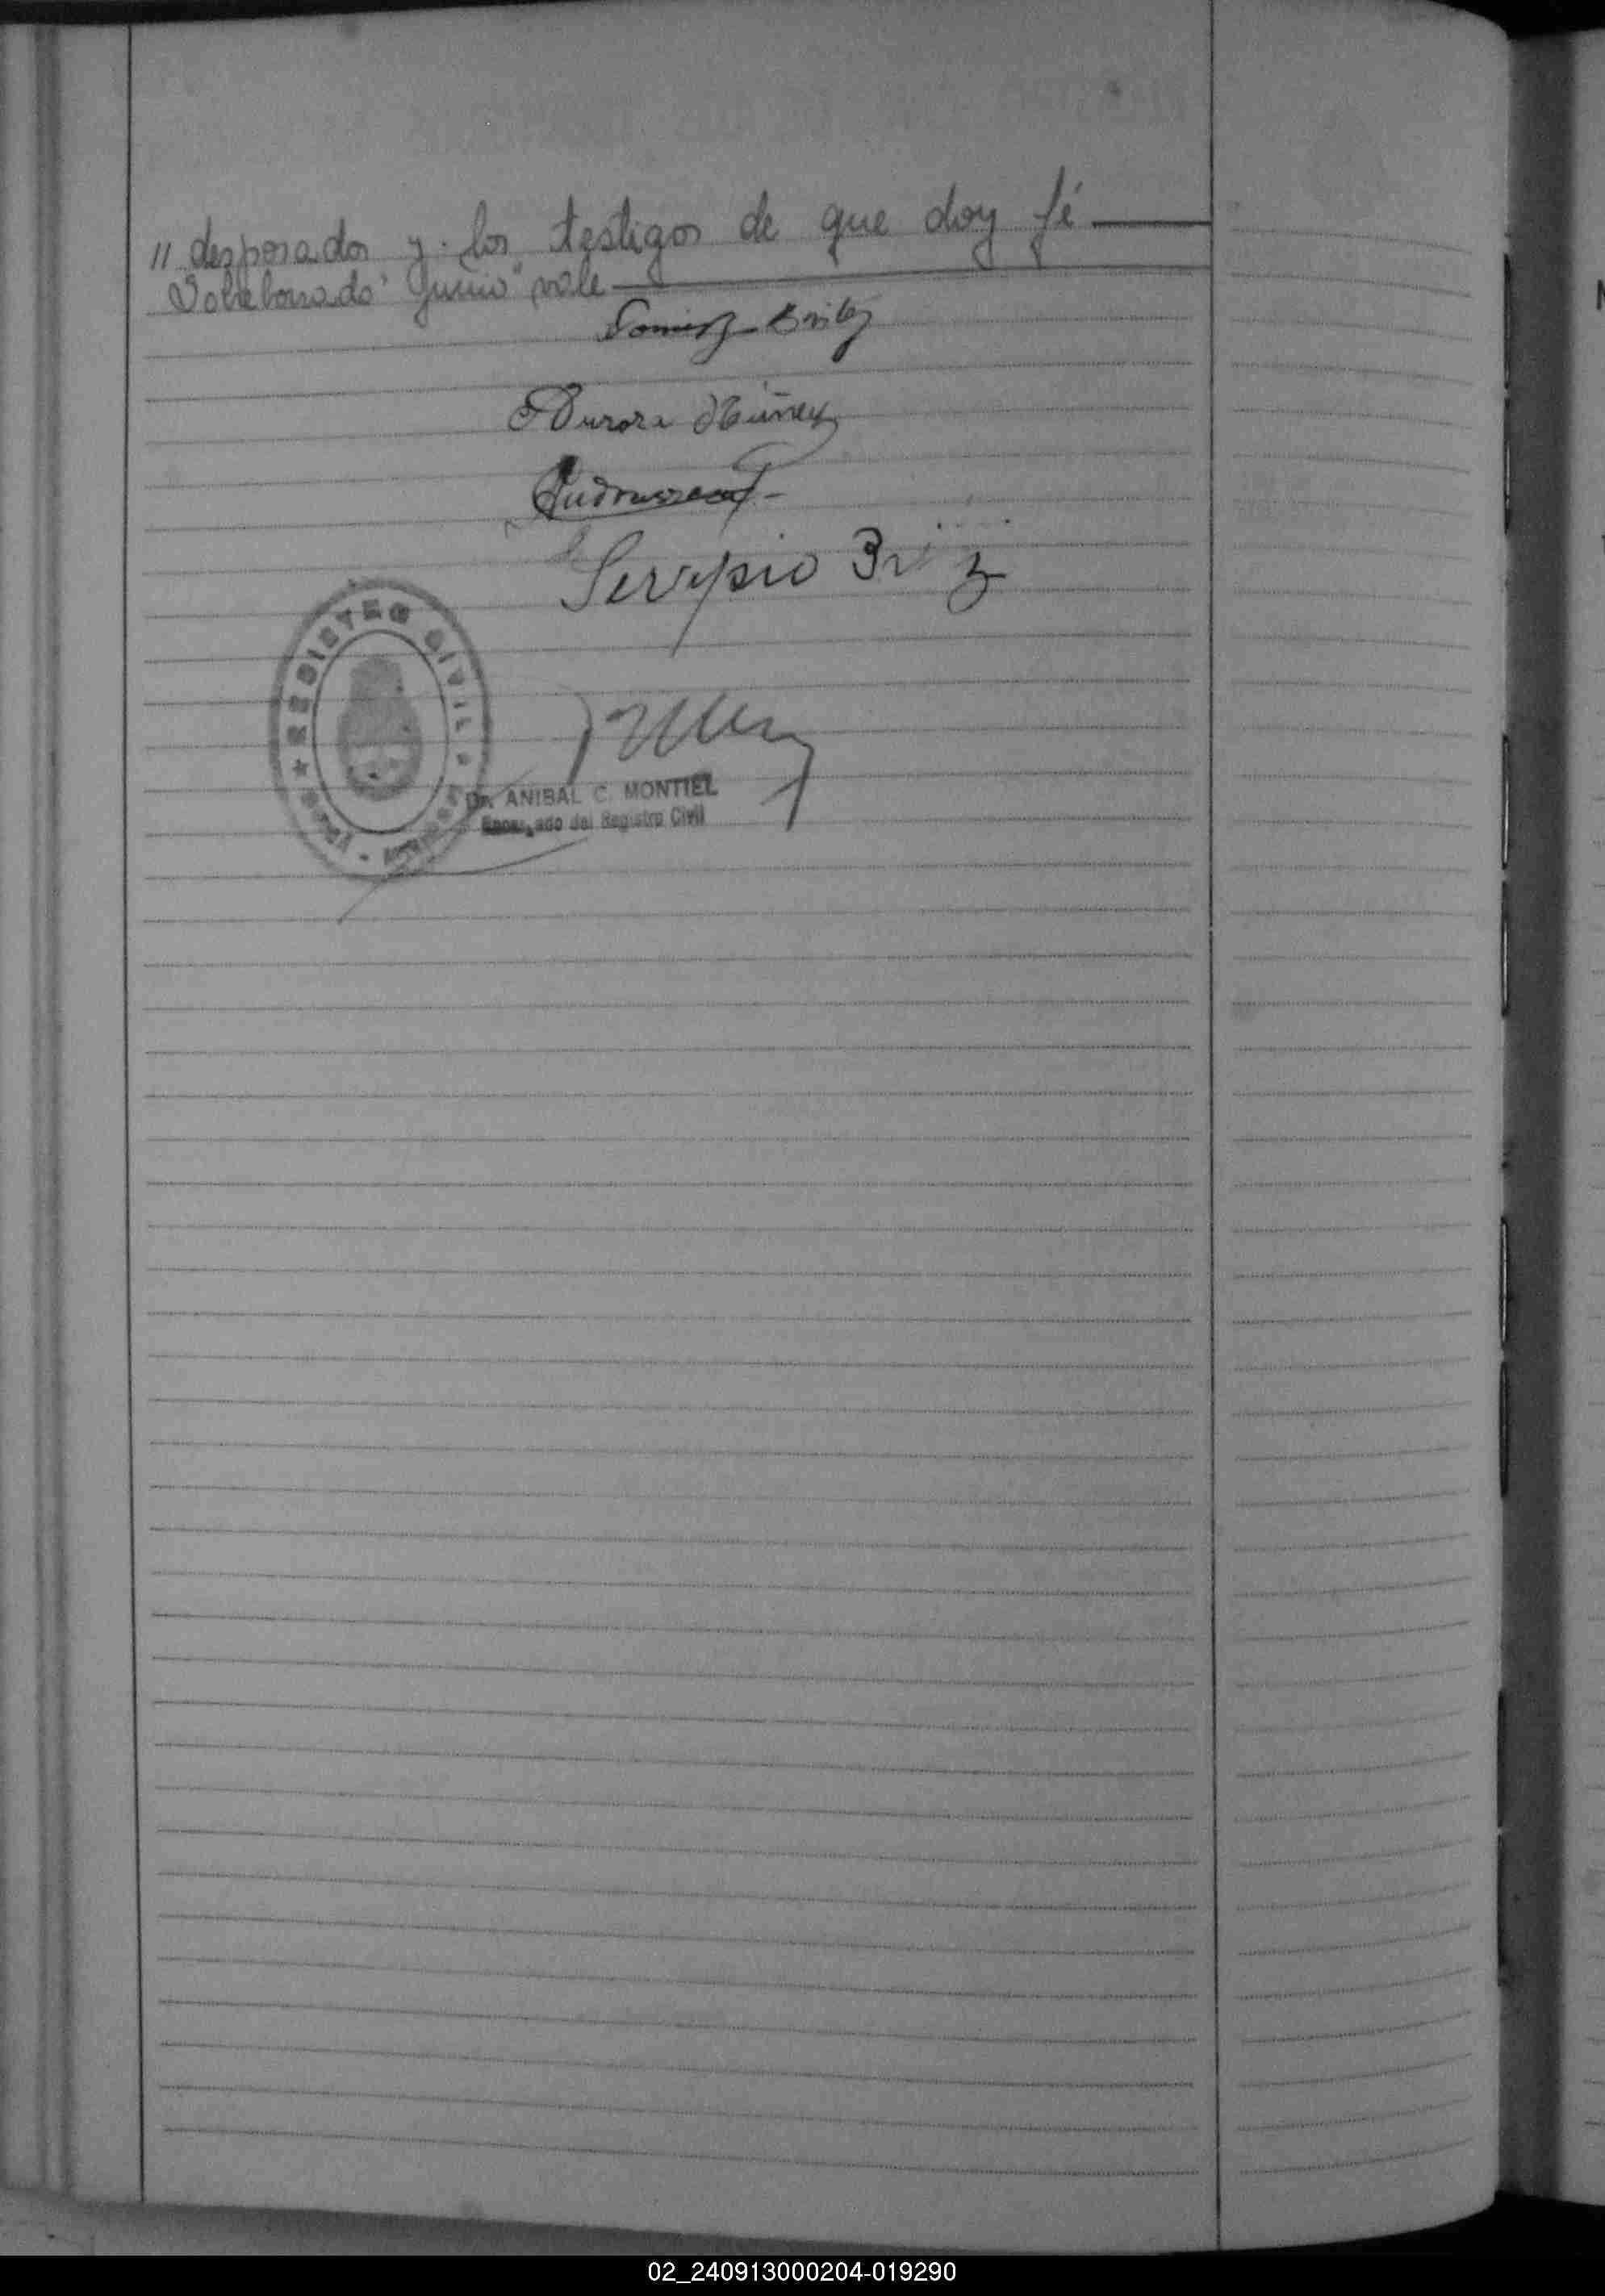 // desposados y los testigos de que doy fé
Sobreborrado "Junio" vale
Britez
Aurora Núñez
Serapio
REGISTRO CIVIL
Dr. ANIBAL C. MONTIEL
Encargado del Registro Civil
02_240913000204-019290